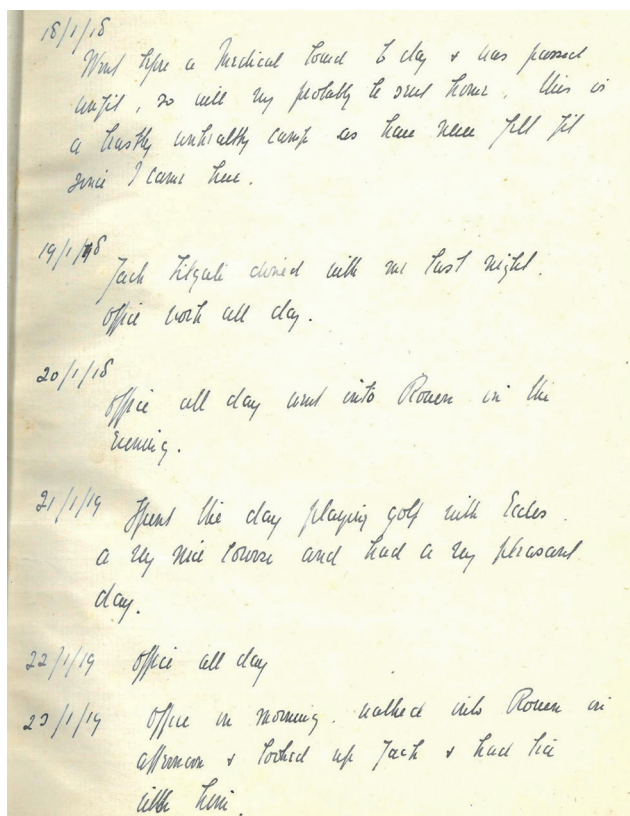 18/1/18
Went before a Medical Board to day & was passed
unfit, so will very probably be sent home. This is
a beastly unhealthy camp as have never felt fit
since I came here.
19/1/18
Jack dined with me last night.
Office work all day.
20/1/18
Office all day went into Rouen in the
Evening.
21/1/19 Spent the day playing golf with Eccles.
a very nice course and had a very pleasant
day.
22/1/19 Office all day
23/1/19 Office in morning. walked into Rouen in
afternoon & looked up Jack & had tea
with him.